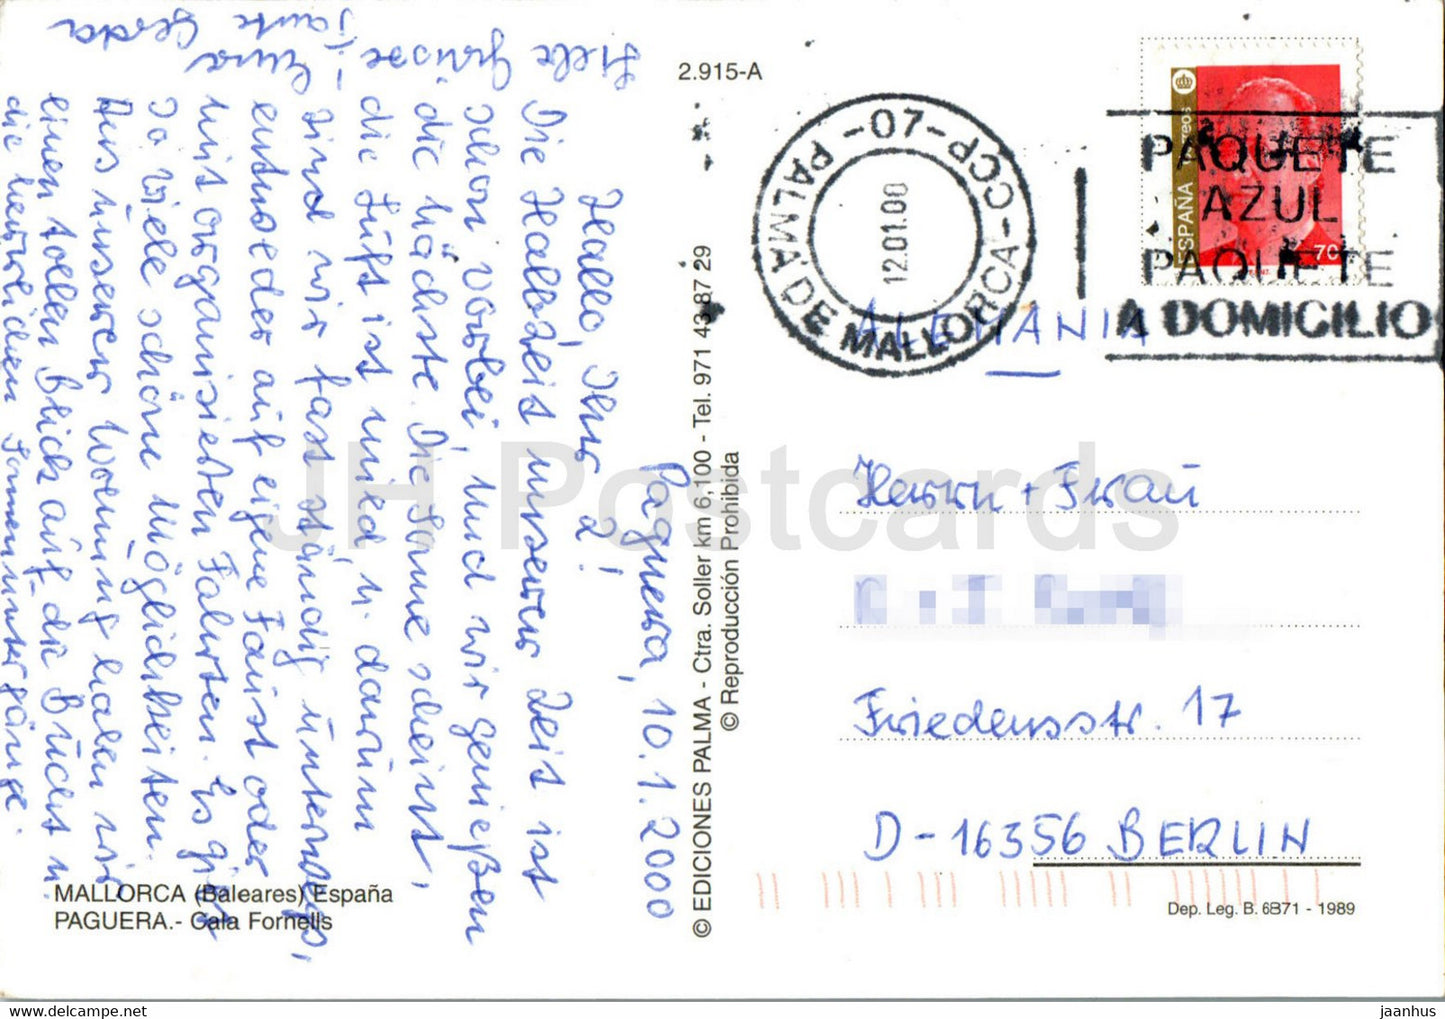 Paguera, 10.1.2000
Hallo, Ihr 2!
Die Halbzeit unserer Zeit ist
schon vorbei, und wir genießen
die nächste. Die Sonne scheint,
die Luft ist mild, u. darum
sind wir fast ständig unterwegs,
entweder auf eigene Faust oder
mit organisierten Fahrten. Es gibt
so viele schöne Möglichkeiten.
Aus unserer Wohnung haben wir
einen tollen Blick auf die Bucht u.
die herrlichen Sonnenuntergänge.
Liebe Grüsse
Eure Tante Gerda
MALLORCA (Baleares) España
PAGUERA.- Cala Fornells
2.915-A
© EDICIONES PALMA - Ctra. Soller km 6,100 - Tel. 971 43 87 29
© Reproducción Prohibida
-07-CCCP-
PALMA DE MALLORCA
12.01.00
Correos
ESPAÑA
70
PAQUETE
AZUL
PAQUETE
A DOMICILIO
ALEMANIA
Herrn + Frau
Friedensstr. 17
D-16356 BERLIN
Dep. Leg. B. 6871 - 1989
JH Postcards
https://jhpostcards.com
jaanhus